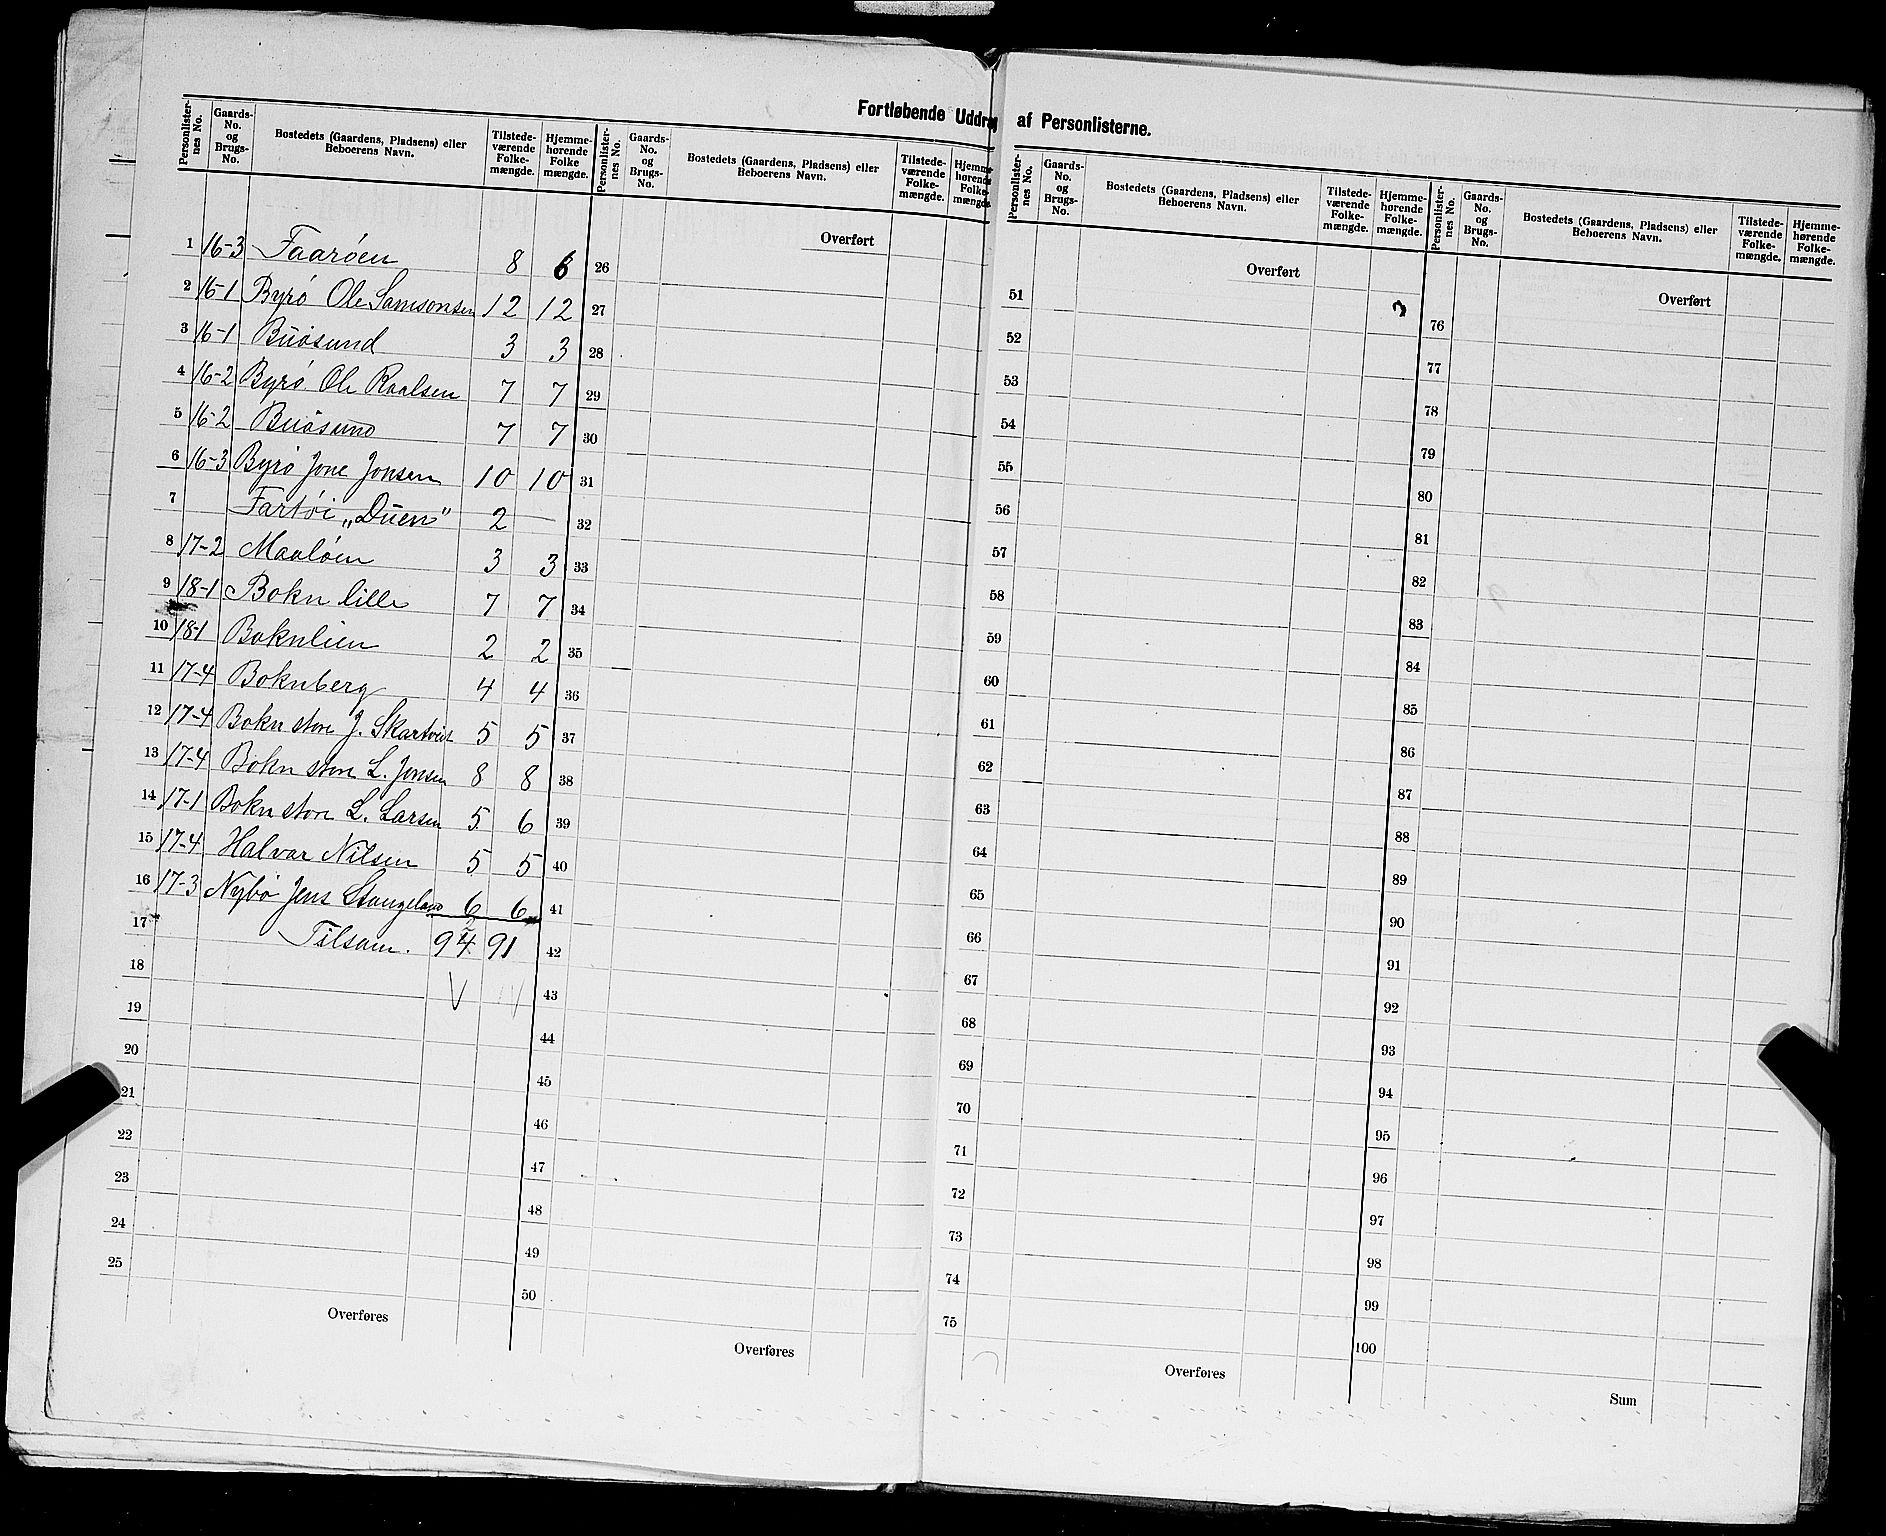 Fortløbende Uddrag af Personlisterne.
Personlister-nes No. | Gaards-No. og Brugs-No. | Bostedets (Gaardens, Pladsens) eller Beboerens Navn. | Tilstede-værende Folke-mængde. | Hjemme-hørende Folke mængde.
1 16-3 Faarøen 8 6
2 16-1 Byrø Ole Samsonsen 12 12
3 16-1 Buøsund 3 3
4 16-2 Byrø Ole Roalsen 7 7
5 16-2 Buøsund 7 7
6 16-3 Byrø Jone Jonsen 10 10
7 Fartøi „Duen" 2 —
8 17-2 Maaløen 3 3
9 18-1 Bokn lille 7 7
10 18-1 Boknlien 2 2
11 17-4 Boknberg 4 4
12 17-4 Bokn store J. Skartveit 5 5
13 17-4 Bokn store L. Jonsen 8 8
14 17-1 Bokn store L. Larsen 5 6
15 17-4 Halvar Nilsen 5 5
16 17-3 Nybø Jens Stangeland 6 6
17 Tilsam. 94 91
18
19
20
21
22
23
24
25
Overføres
Personlister-nes No. | Gaards-No. og Brugs-No. | Bostedets (Gaardens, Pladsens) eller Beboerens Navn. | Tilstede-værende Folke-mængde. | Hjemme-hørende Folke-mængde.
Overført
26
27
28
29
30
31
32
33
34
35
36
37
38
39
40
41
42
43
44
45
46
47
48
49
50
Overføres
Personlister-nes No. | Gaards-No. og Brugs-No. | Bostedets (Gaardens, Pladsens) eller Beboerens Navn. | Tilstede-værende Folke-mængde. | Hjemme-hørende Folke-mængde.
Overført
51
52
53
54
55
56
57
58
59
60
61
62
63
64
65
66
67
68
69
70
71
72
73
74
75
Overføres
Personlister-nes No. | Gaards-No. og Brugs-No. | Bostedets (Gaardens, Pladsens) eller Beboerens Navn. | Tilstede-værende Folke-mængde. | Hjemme-hørende Folke-mængde.
Overført
76
77
78
79
80
81
82
83
84
85
86
87
88
89
90
91
92
93
94
95
96
97
98
99
100
Sum